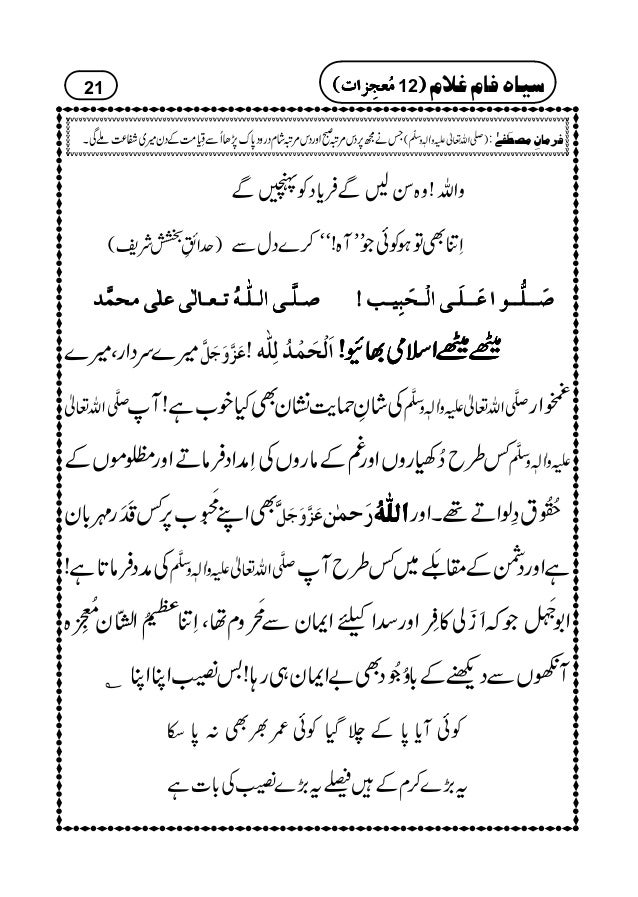 سیاہ فام غلام (12 مُعجِزات)
21
فرمانِ مصطفےٰ : (صلی اللہ تعالیٰ علیہ والہ وسلّم) جس نے مجھ پر دس مرتبہ صبح اور دس مرتبہ شام درود پاک پڑھا اُسے قِیامت کے دن میری شفاعت ملے گی۔
واللہ ! وہ سن لیں گے فریاد کو پہنچیں گے
اِتنا بھی تو ہو کوئی جو ’’ آہ!‘‘ کرے دل سے (حدائقِ بخشش شریف)
صَلُّوا عَلَی الْحَبِیب ! صلَّی اللہُ تعالٰی علٰی محمَّد
میٹھے میٹھے اسلامی بھائیو! اَلْحَمْدُ لِلّٰہ ! عَزَّوَجَلَّ میرے سردار، میرے
غمخوار صلَّی اللہ تعالیٰ علیہ والہٖ وسلَّم کی شانِ حمایت نشان بھی کیا خوب ہے! آپ صلَّی اللہ تعالیٰ
علیہ والہٖ وسلَّم کس طرح دُکھیاروں اور غم کے ماروں کی اِمداد فرماتے اور مظلوموں کے
حُقُوق دِلواتے تھے۔ اور اللہُ رَحمٰن عَزَّوَجَلَّ بھی اپنے مَحبوب پر کس قَدَر مہربان
ہے اور دشمن کے مقابلے میں کس طرح آپ صلَّی اللہ تعالیٰ علیہ والہٖ وسلَّم کی مدد فرماتا ہے!
ابوجَہل جو کہ اَزَلی کافِر اور سدا کیلئے ایمان سے مَحروم تھا، اِتنا عظیمُ الشّان مُعجِزہ
آنکھوں سے دیکھنے کے باوُجُود بھی بے ایمان ہی رہا! بس نصیب اپنا اپنا ؎
کوئی آیا پا کے چلا گیا کوئی عمر بھر بھی نہ پا سکا
یہ بڑے کرم کے ہیں فیصلے یہ بڑے نصیب کی بات ہے